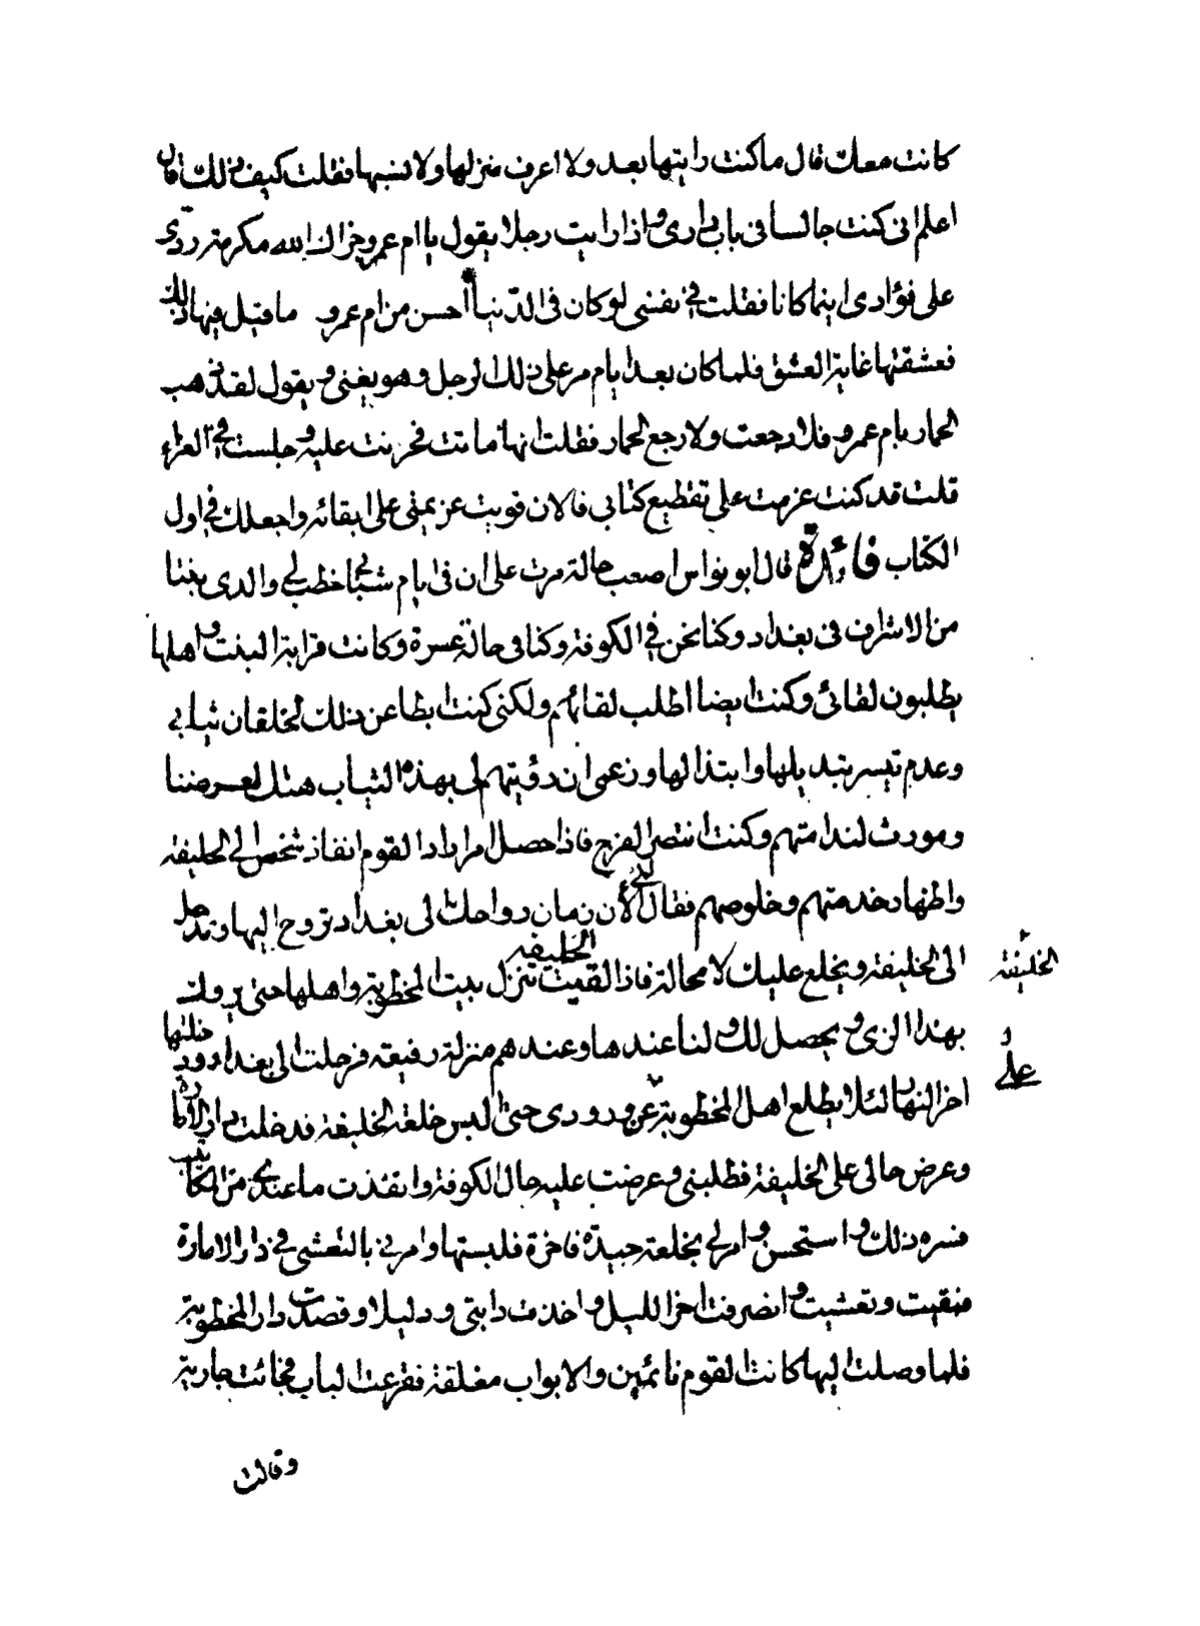 كانت معك قال ما كنت رايتها بعد ولا اعرف منزلها ولا نسبها فقلت كيف ذلك قال
اعلم انى كنت جالسا فى باب دارى واذا رايت رجلا يقول يا ام عمرو جزاك الله مكرمة ردّى
على فؤادى اينما كانا فقلت فى نفسى لو كان فى الدّنيا احسن من ام عمرو ما قيل فيها ذلك
فعشقتها غاية العشق فلما كان بعد ايام مر على ذلك الرجل وهو يغنى ويقول لقد ذهب
الحمار بام عمرو فلا رجعت ولا رجع الحمار فقلت انها ماتت فحزنت عليه وجلست فى العزاء
قلت قد كنت عزمت على تقطيع كتابى فالان قويت عزيمتى على ابقائه واجعلك فى اول
الكتاب فائدة قال ابو نواس اصعب حالة مرت على ان فى ايام شبابى خطب لى والدى بنتا
من الاشراف فى بغداد وكنا نحن فى الكوفة وكنا فى حالة عسرة وكانت قرابة البنت واهلها
يطلبون لقائى وكنت ايضا اطلب لقائهم ولكنى كنت ابطا عن ذلك لخلقان ثيابى
وعدم تيسر تبديلها وابتذالها وزعمى ان رؤيتهم لى بهذه الثياب هتك لعرضنا
ومورث لندامتهم وكنت انتصر الفرج فاذا حصل امر اراد القوم انفاذ شخص الى الخليفة
واظهار خدمتهم وخلوصهم فقال لى الأن زمان رواحك الى بغداد تروح اليها وتدخل
الى الخليفة ويخلع عليك لا محالة فاذا لقيت الخليفة تنزل بيت المخطوبة واهلها حتى يروك
الخليفة
بهذا الزى ويحصل لك ولنا عندها وعندهم منزلة رفيعة فرحلت الى بغداد ودخلتها
على
اخر النهار لئلا يطلع اهل المخطوبة عن ورودى حتى البس خلعة الخليفة فدخلت دار الامارة
وعرض حالى على الخليفة فطلبنى وعرضت عليه حال الكوفة وانفذت ما عندى من المكاتيب
فسره ذلك واستحسن وامر لى بخلعة جيدة فاخرة فلبستها وامرنى بالتعشى فى دار الامارة
فبقيت وتعشيت وانصرفت اخر الليل واخذت دابتى ودليلا وقصدت دار المخطوبة
فلما وصلت اليها كانت القوم نائمين والابواب مغلقة فقرعت الباب فجائت جارية
وقالت